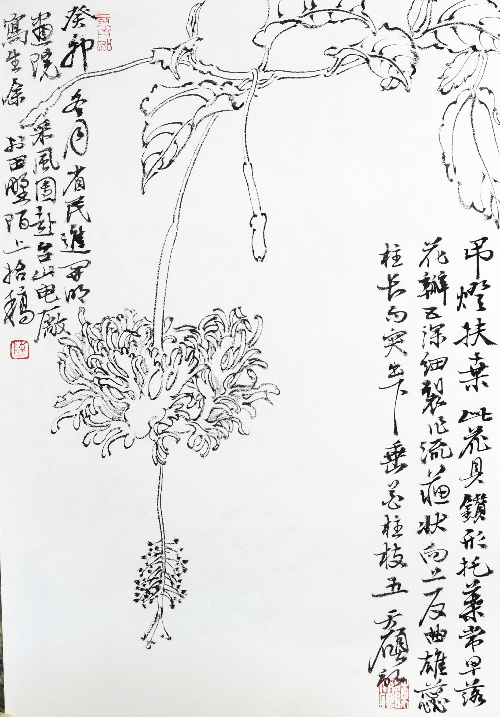 吊燈扶桑此花具鑽形托葉常早落
花瓣五深細裂作流蘇狀向上反曲雄蕊
柱长而突出下垂花柱枝五
癸卯冬月省民進開明
畫院采風團赴台山电廠
寫生余於田野陌上拾稿